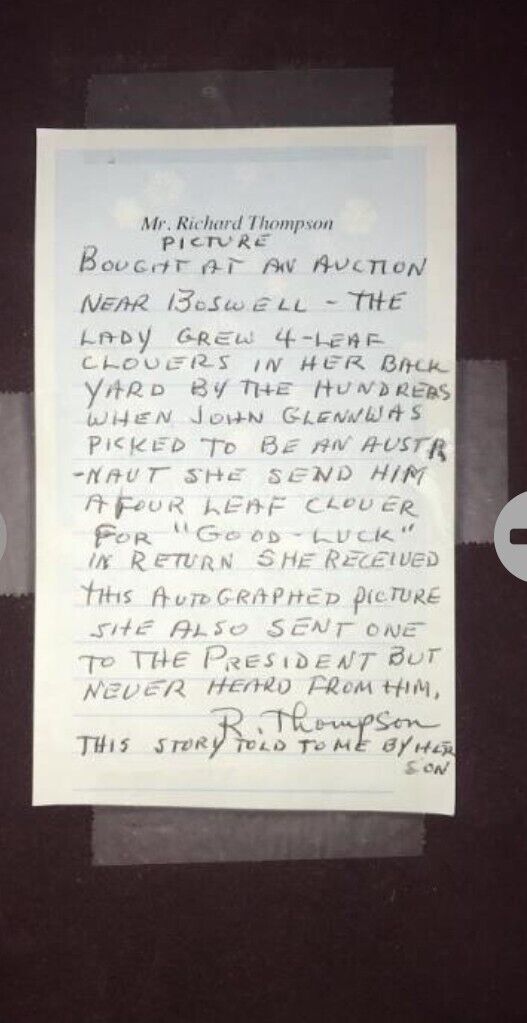 Mr. Richard Thompson
PICTURE
BOUGHT AT AN AUCTION
NEAR BOSWELL - THE
LADY GREW 4-LEAF
CLOVERS IN HER BACK
YARD BY THE HUNDREDS
WHEN JOHN GLENN WAS
PICKED TO BE AN AUSTR
-NAUT SHE SEND HIM
A FOUR LEAF CLOVER
FOR "GOOD-LUCK"
IN RETURN SHE RECEIVED
THIS AUTOGRAPHED PICTURE
SHE ALSO SENT ONE
TO THE PRESIDENT BUT
NEVER HEARD FROM HIM.
R. Thompson
THIS STORY TOLD TO ME BY HER
SON